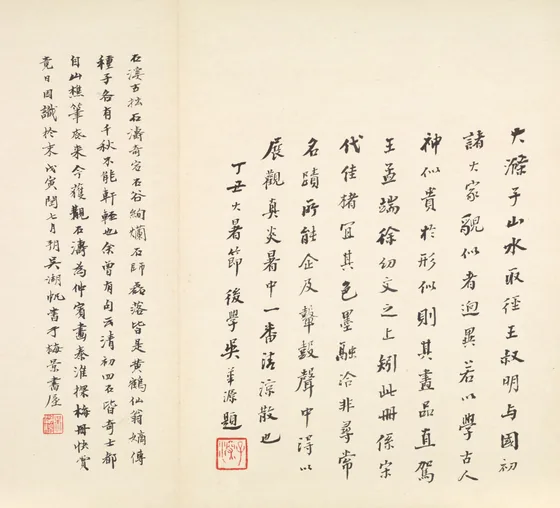 大滌子山水取徑王叔明与國初
諸大家貌似者迥異若以學古人
神似貴於形似則其畫品直駕
王孟端徐幼文之上矧此冊係宋
代佳楮宜其色墨融洽非尋常
名蹟所能企及鼙鼓聲中得以
展觀真炎暑中一番清涼散也
丁丑大暑節後學吳華源題
石溪古拙石濤奇宕石谷絢爛石師磊落皆是黃鶴仙翁嫡傳
種子各有千秋不能軒輊也余曾有句云清初四石皆奇士都
自山樵筆底來今獲觀石濤為伸賓畫秦淮探梅冊快賞
竟日因識於末戊寅閏七月朔吳湖帆書于梅景書屋